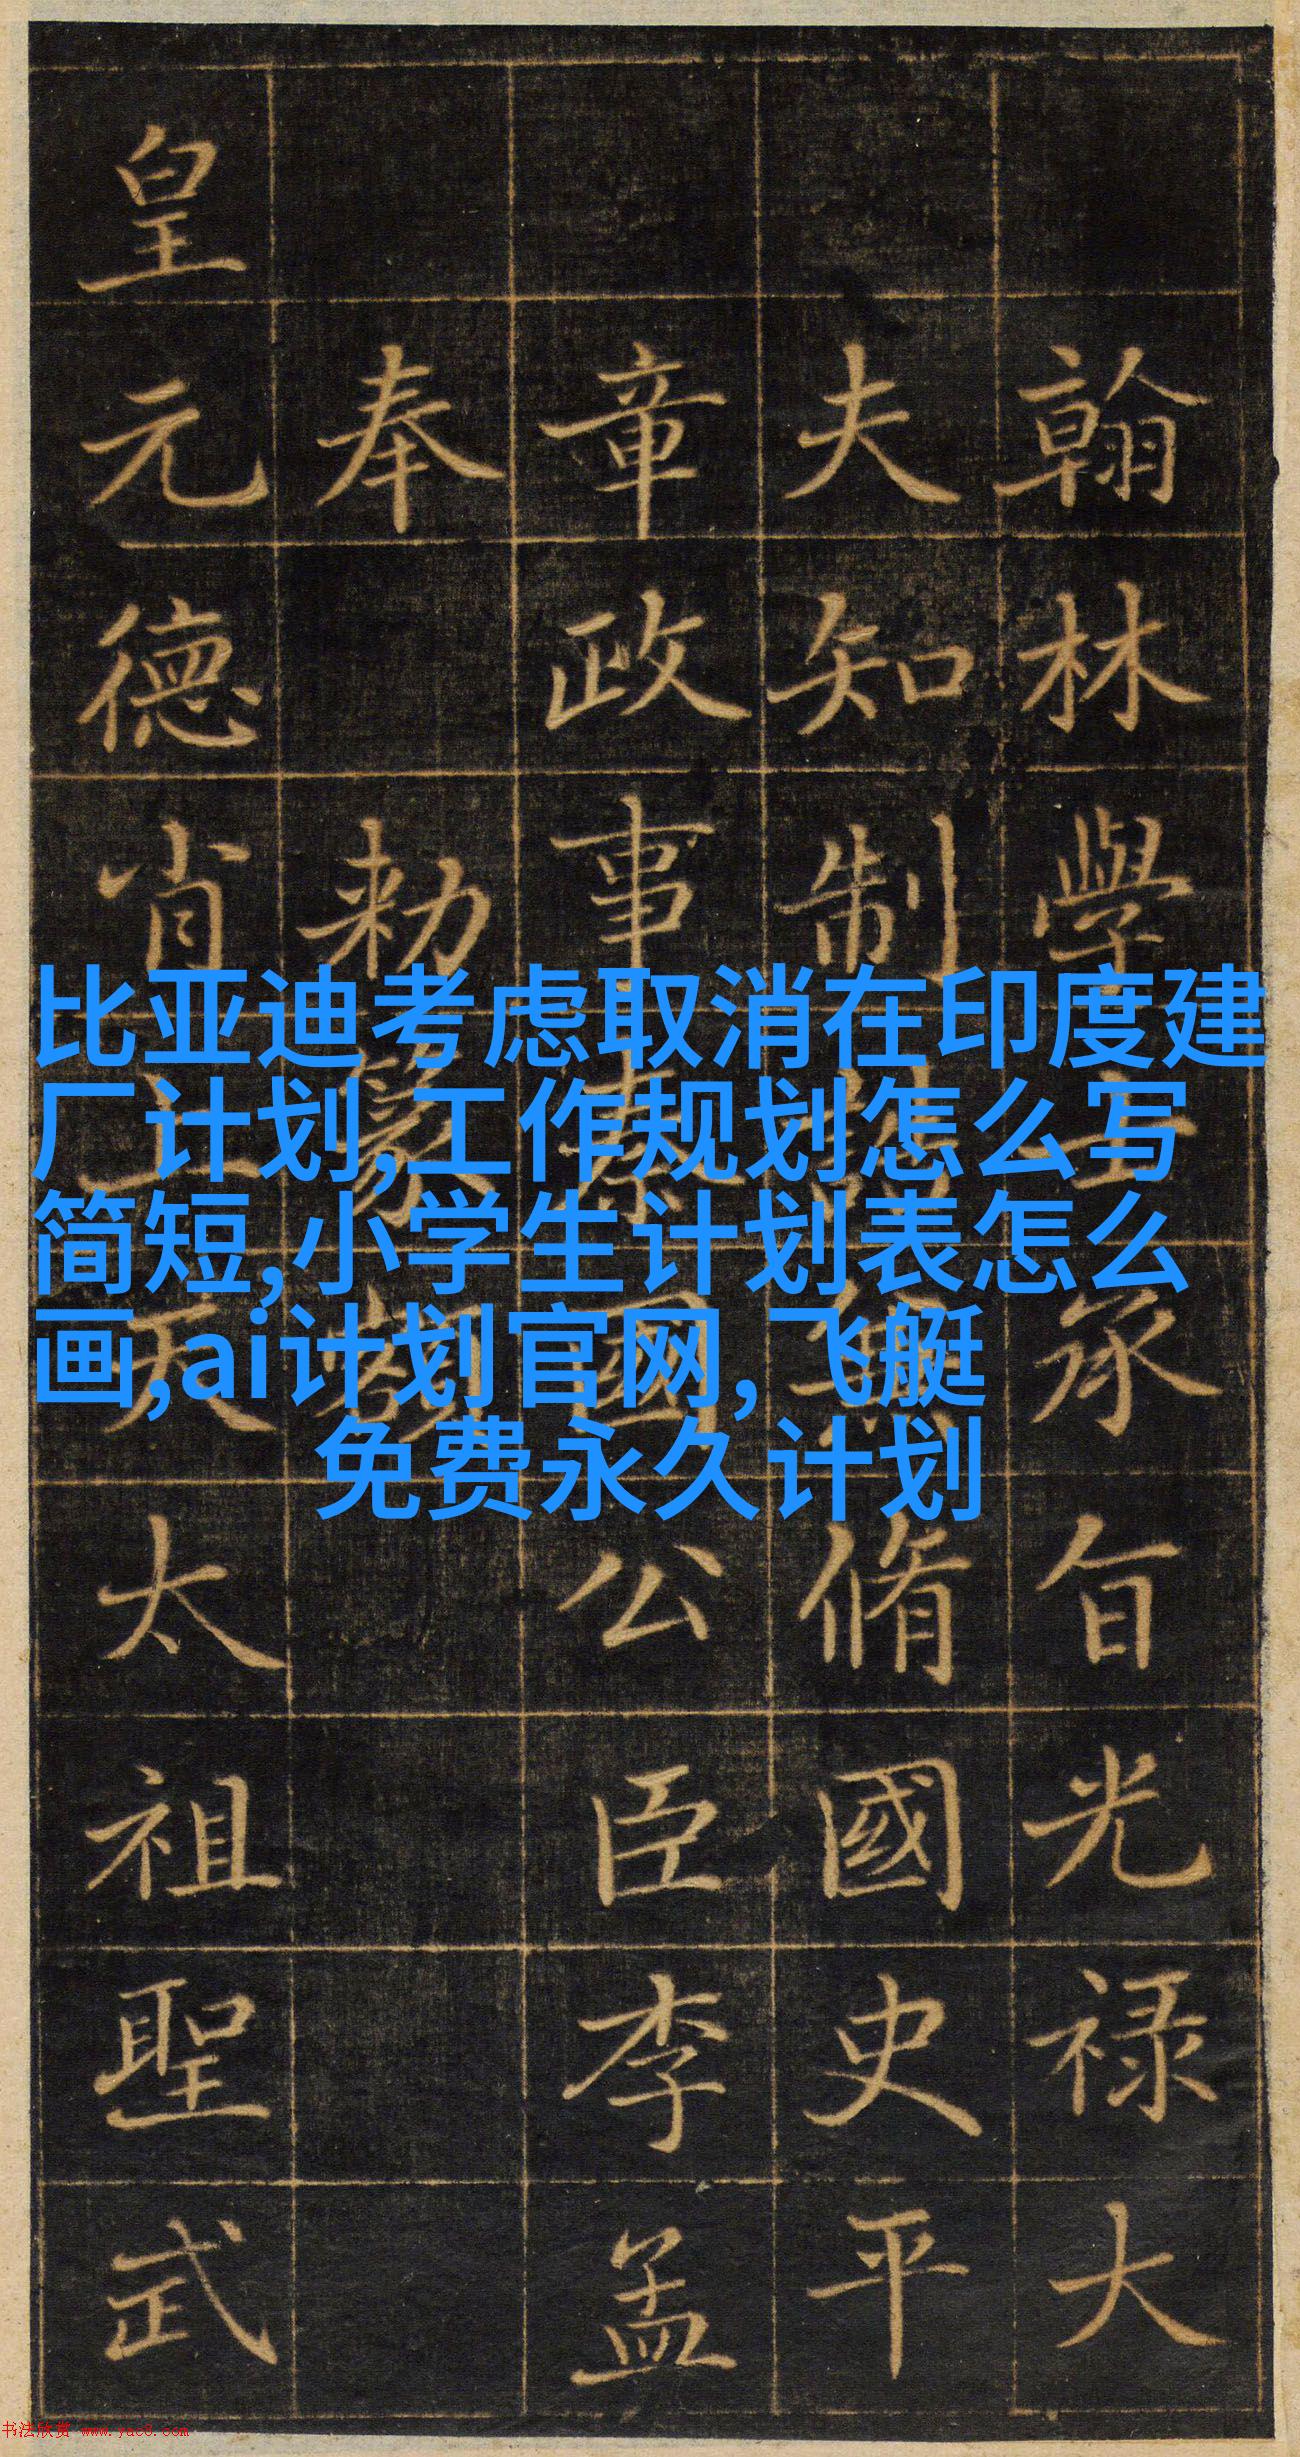 翰林學士承旨光禄大
夫知制誥兼脩國史平
章政事秦國公臣李孟
奉 勑篆額
皇元德肖上天太祖聖武
比亚迪考虑取消在印度建
厂计划,工作规划怎么写
简短,小学生计划表怎么
画,ai计划官网,飞艇
免费永久计划
书法欣赏 www.yac8.com